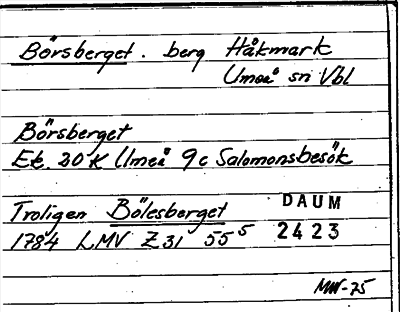 Börsberget. berg Håkmark
Umeå sn Vbl
Börsberget
Ek. 20 K Umeå 9c Salomonsbesök
Troligen Bölesberget
DAUM
1784 LMV Z 31 55⁵
2423
MW-75